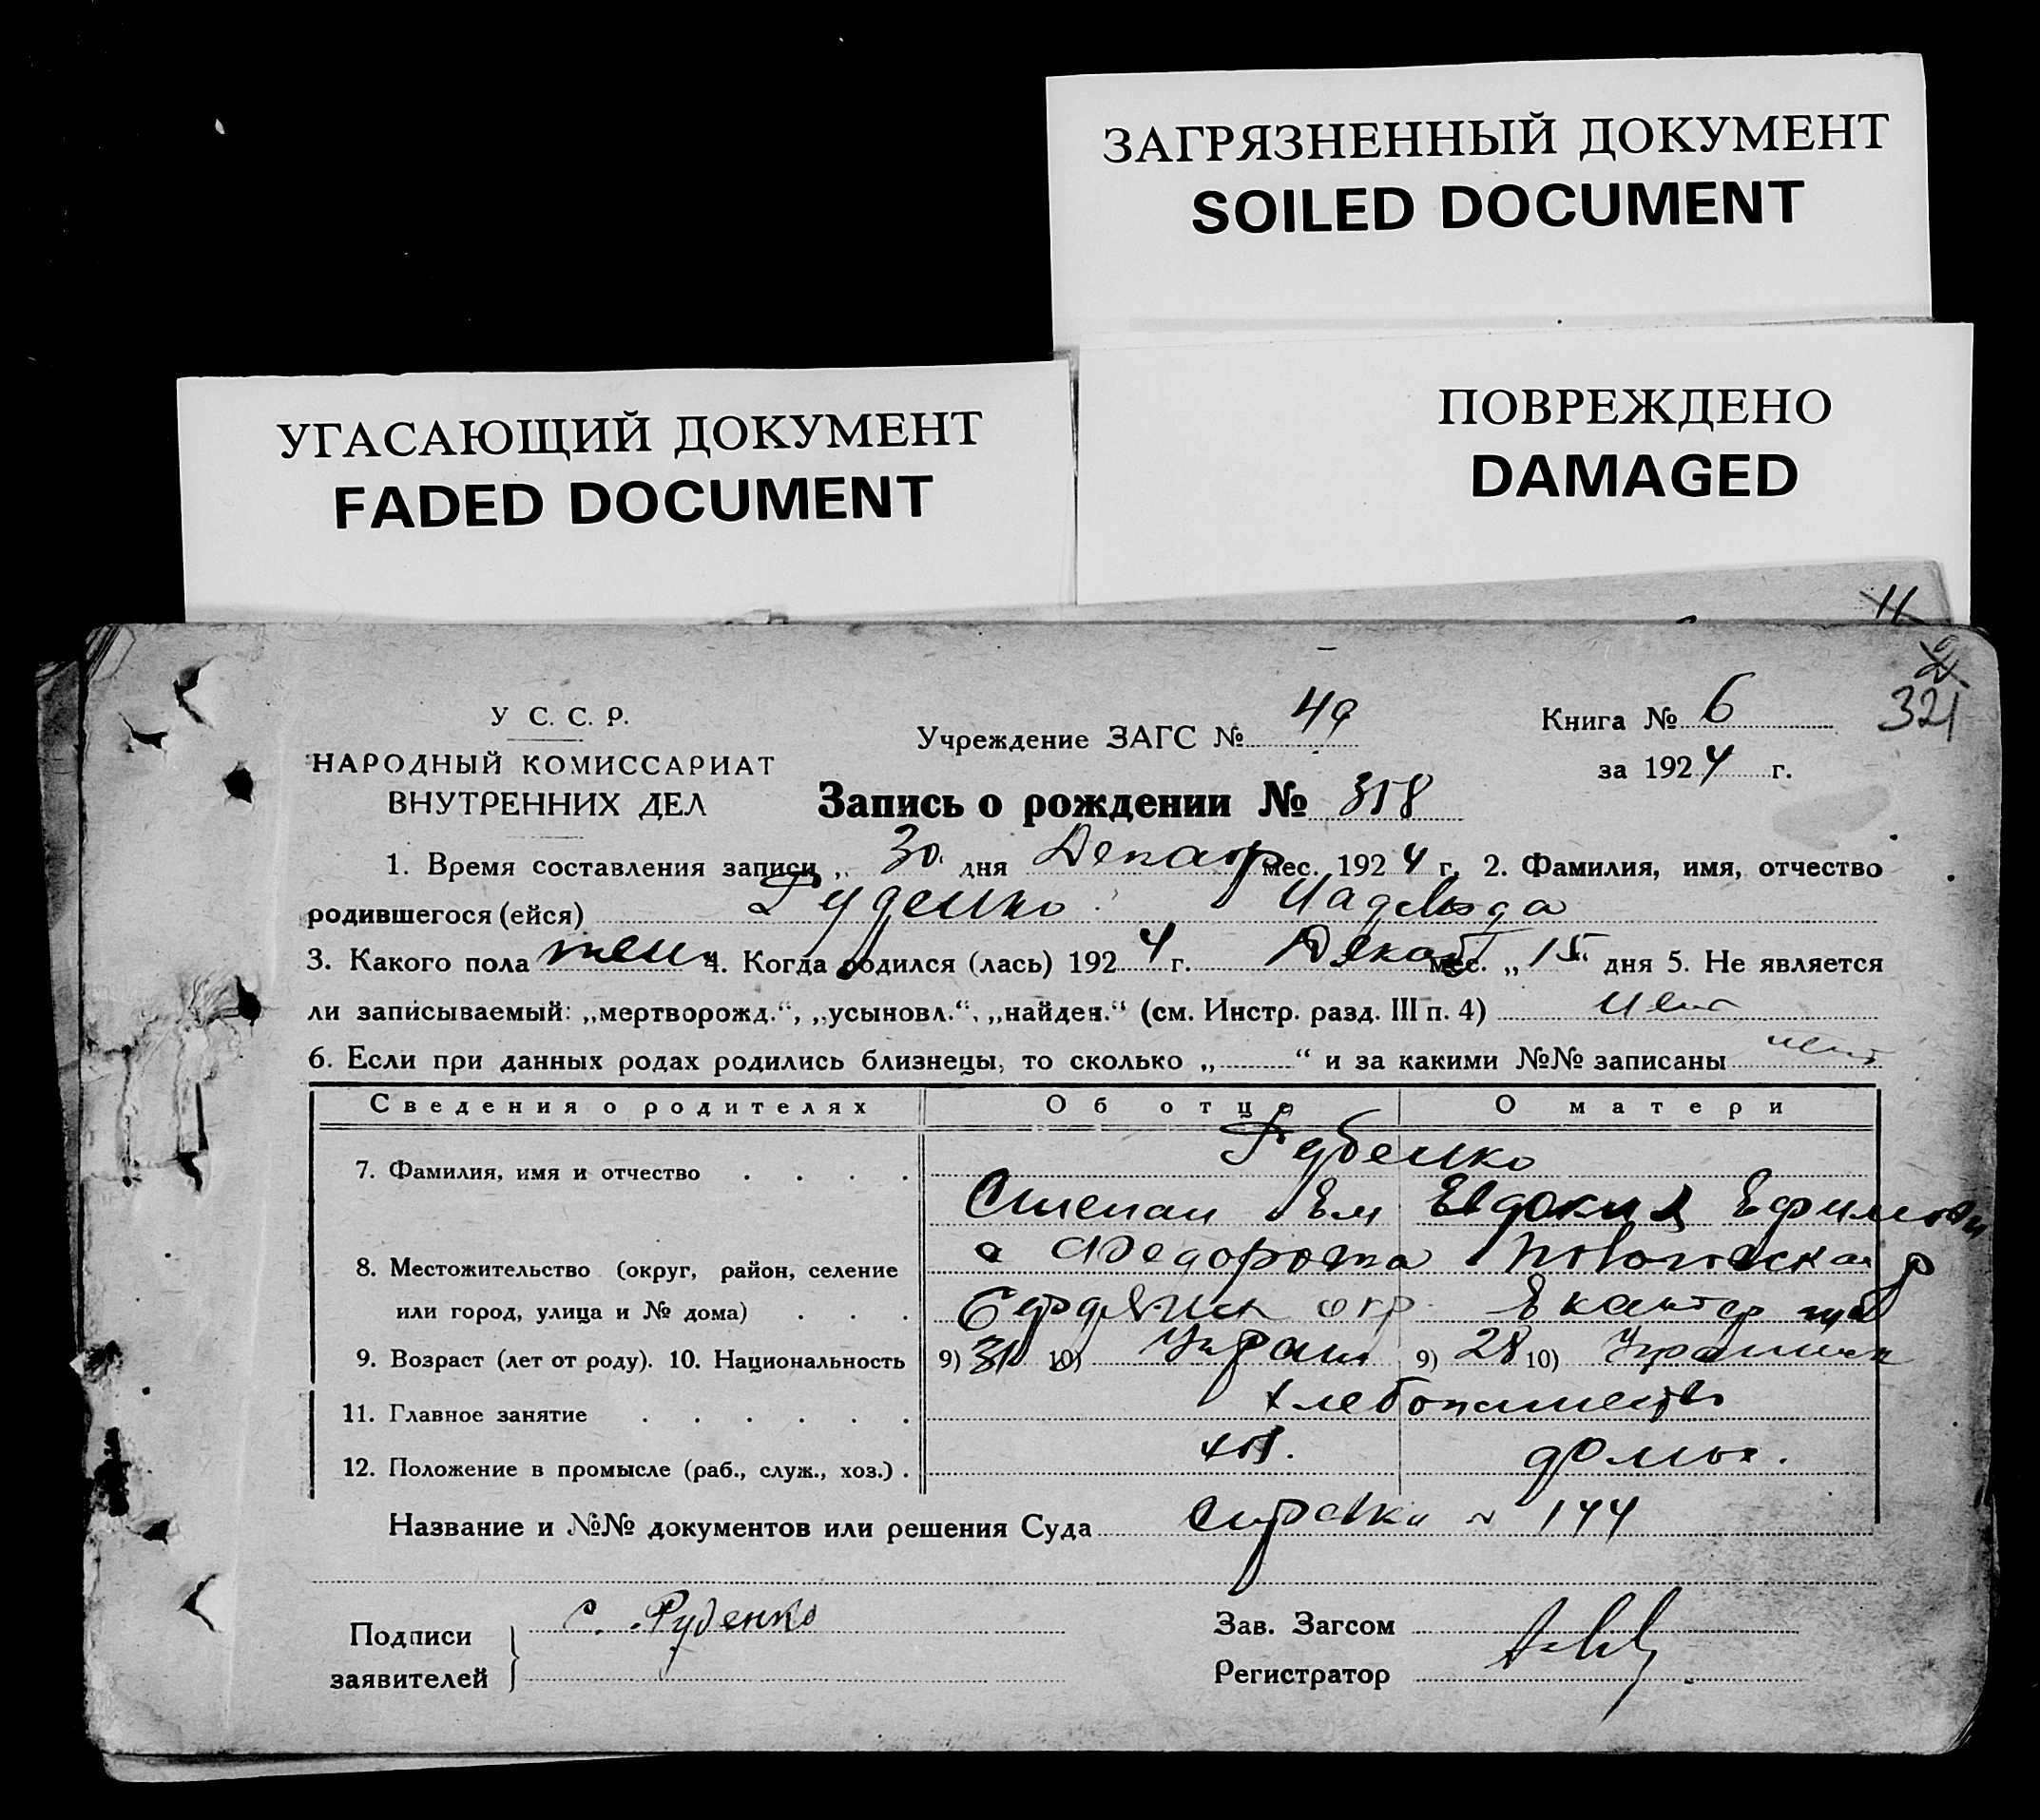 ЗАГРЯЗНЕННЫЙ ДОКУМЕНТ
SOILED DOCUMENT
УГАСАЮЩИЙ ДОКУМЕНТ
FADED DOCUMENT
ПОВРЕЖДЕНО
DAMAGED
11
321
У С. С. Р.
НАРОДНЫЙ КОМИССАРИАТ
ВНУТРЕННИХ ДЕЛ
Учреждение ЗАГС № 49
Книга № 6
за 1924 г.
Запись о рождении № 358
1. Время составления записи „ 30 дня Декабр мес. 1924 г. 2. Фамилия, имя, отчество
родившегося (ейся) Руденко Надежда
3. Какого пола жен. 4. Когда родился (лась) 1924 г. Декаб мес. „ 15 " дня 5. Не является
ли записываемый: „мертворожд.“, „усыновл.“, „найден.“ (см. Инстр. разд. III п. 4) нет
6. Если при данных родах родились близнецы, то сколько „ “ и за какими №№ записаны нет
Сведения о родителях Об отце О матери
7. Фамилия, имя и отчество Руденко
Степан Ем Евдокия Ефимовн
8. Местожительство (округ, район, селение Федоровка р
или город, улица и № дома) Бердянск окр. Екатер губ
9. Возраст (лет от роду). 10. Национальность 9) 31 10) Украин 9) 28 10) Украинк
11. Главное занятие хлебопашество
12. Положение в промысле (раб., служ., хоз.) хоз. домох.
Название и №№ документов или решения Суда Справки № 144
Подписи
заявителей
С. Руденко
Зав. Загсом
Регистратор